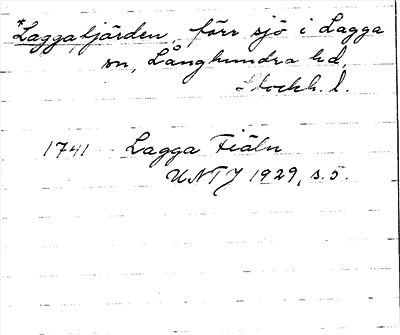 *Laggafjärden, förr sjö i Lagga
sn, Långhundra hd,
Stockh. l.
1741 Lagga Fiäln
UNTJ 1929, s. 5.